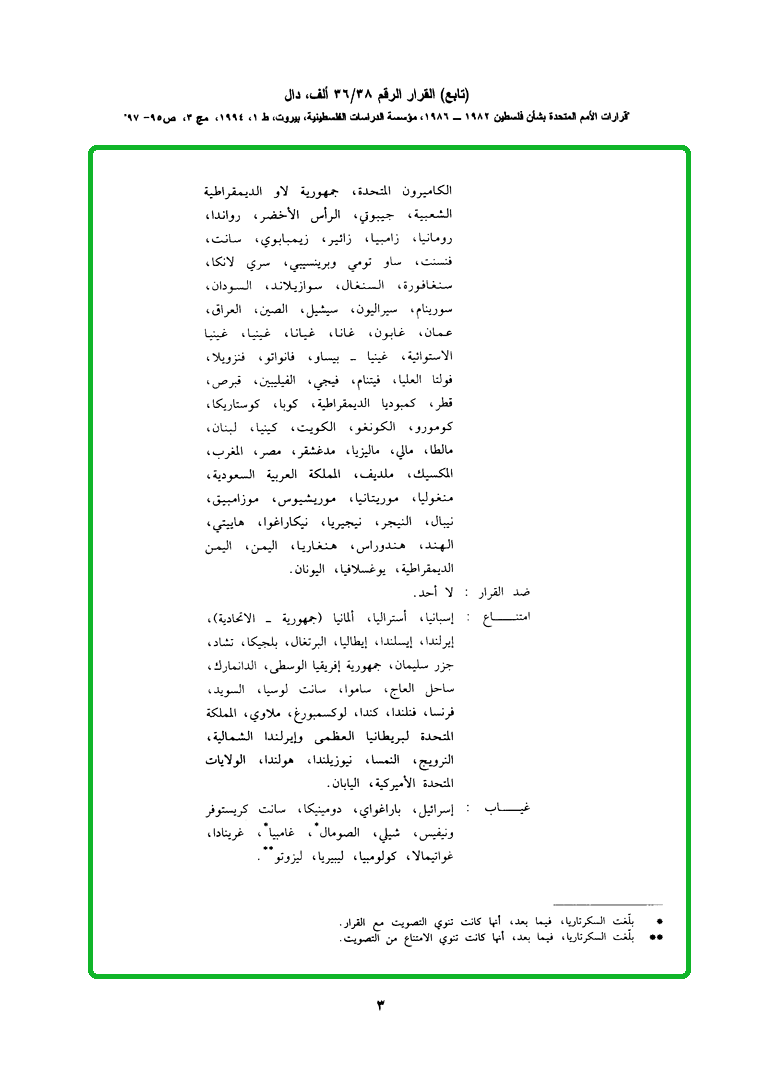 (تابع) القرار الرقم ٣٦/٣٨ ألف، دال
"قرارات الأمم المتحدة بشأن فلسطين ١٩٨٢ ــ ١٩٨٦، مؤسسة الدراسات الفلسطينية، بيروت، ط ١، ١٩٩٤، مج ٣، ص٩٥- ٩٧"
الكاميرون المتحدة، جمهورية لاو الديمقراطية
الشعبية، جيبوتي، الرأس الأخضر، رواندا،
رومانيا، زامبيا، زائير، زيمبابوي، سانت،
فنسنت، ساو تومي وبرينسيبي، سري لانكا،
سنغافورة، السنغال، سوازيلاند، السودان،
سورينام، سيراليون، سيشيل، الصين، العراق،
عمان، غابون، غانا، غيانا، غينيا، غينيا
الاستوائية، غينيا ــ بيساو، فانواتو، فنزويلا،
فولتا العليا، فيتنام، فيجي، الفيليبين، قبرص،
قطر، كمبوديا الديمقراطية، كوبا، كوستاريكا،
كومورو، الكونغو، الكويت، كينيا، لبنان،
مالطا، مالي، ماليزيا، مدغشقر، مصر، المغرب،
المكسيك، ملديف، المملكة العربية السعودية،
منغوليا، موريتانيا، موريشيوس، موزامبيق،
نيبال، النيجر، نيجيريا، نيكاراغوا، هاييتي،
الهند، هندوراس، هنغاريا، اليمن، اليمن
الديمقراطية، يوغسلافيا، اليونان.
ضد القرار : لا أحد.
امتنـــــاع : إسبانيا، أستراليا، ألمانيا (جمهورية ــ الاتحادية)،
إيرلندا، إيسلندا، إيطاليا، البرتغال، بلجيكا، تشاد،
جزر سليمان، جمهورية إفريقيا الوسطى، الدانمارك،
ساحل العاج، ساموا، سانت لوسيا، السويد،
فرنسا، فنلندا، كندا، لوكسمبورغ، ملاوي، المملكة
المتحدة لبريطانيا العظمى وإيرلندا الشمالية،
النرويج، النمسا، نيوزيلندا، هولندا، الولايات
المتحدة الأميركية، اليابان.
غيـــــاب : إسرائيل، باراغواي، دومينيكا، سانت كريستوفر
ونيفيس، شيلي، الصومال*، غامبيا*، غرينادا،
غواتيمالا، كولومبيا، ليبيريا، ليزوتو**.
* بلّغت السكرتاريا، فيما بعد، أنها كانت تنوي التصويت مع القرار.
** بلّغت السكرتاريا، فيما بعد، أنها كانت تنوي الامتناع من التصويت.
٣